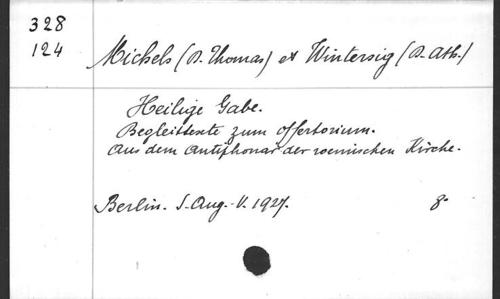 328
124
Michels (D. Thomas) et Wintersig (D. Ath.)
Heilige Gabe.
Begleittexte zum Offertorium.
Aus dem Antiphonar der roemischen Kirche.
Berlin. S. Aug.-V. 1927. 8°